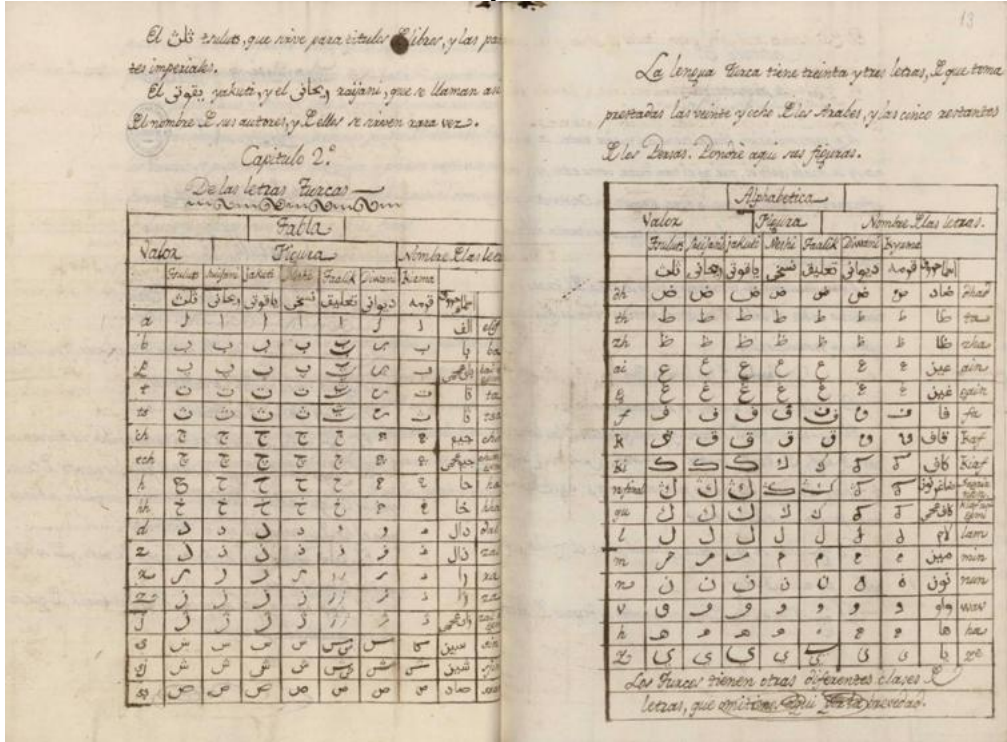 El ثلث tsuluts, que sirve para titulos de libros, y las pa
tes imperiales.
El يقوتى yakuti, y el ريحانى raijani, que se llaman asi
del nombre de sus autores, y de ellos se sirven rara vez.
Capitulo 2.º
De las letras Turcas
Tabla
Valor Figura Nombre de las let
Tsuluts Reijani jakuti Neshi Taalik Diwani Kirma
ثلث ريحانى ياقوتى نسخى تعليق ديوانى قرمه
a ا ا ا ا ا ا ا الف elif
b ب ب ب ب ب ب ب با ba
p پ پ پ پ پ پ پ
t ت ت ت ت ت ت ت تا ta
ts ث ث ث ث ث ث ث ثا tsa
ch ج ج ج ج ج ج ج جيم
tch چ چ چ چ چ چ چ
h ح ح ح ح ح ح ح حا ha
kh خ خ خ خ خ خ خ خا kha
d د د د د د د د دال dal
z ذ ذ ذ ذ ذ ذ ذ ذال zal
r ر ر ر ر ر ر ر را ra
z ز ز ز ز ز ز ز زا za
j ژ ژ ژ ژ ژ ژ ژ
s س س س س س س س سين sin
sj ش ش ش ش ش ش ش شين
ss ص ص ص ص ص ص ص صاد
13
La lengua Turca tiene treinta y tres letras, de que toma
prestadas las veinte y ocho de los Arabes, y las cinco restantes
de los Persas. Pondrè aqui sus figuras.
Alphabetica
Valor Figura Nombre de las letras.
Tsuluts Reijani jakuti Neshi Taalik Diwani Kyrma
ثلث ريحانى ياقوتى نسخى تعليق ديوانى قرمه
dh ض ض ض ض ض ض ض ضاد dhad
th ط ط ط ط ط ط ط طا ta
zh ظ ظ ظ ظ ظ ظ ظ ظا zha
ai ع ع ع ع ع ع ع عين ain
g غ غ غ غ غ غ غ غين gain
f ف ف ف ف ف ف ف فا fa
k ق ق ق ق ق ق ق قاف kaf
ki ك ك ك ك ك ك ك كاف kiaf
n final ڭ ڭ ڭ ڭ ڭ ڭ ڭ
gu ك ك ك ك ك ك ك
l ل ل ل ل ل ل ل لام lam
m م م م م م م م ميم mim
n ن ن ن ن ن ن ن نون nun
v و و و و و و و واو wav
h ه ه ه ه ه ه ه ها ha
y ى ى ى ى ى ى ى يا ye
Los Turcos tienen otras diferentes clases de
letras, que omitimos aqui por la brevedad.